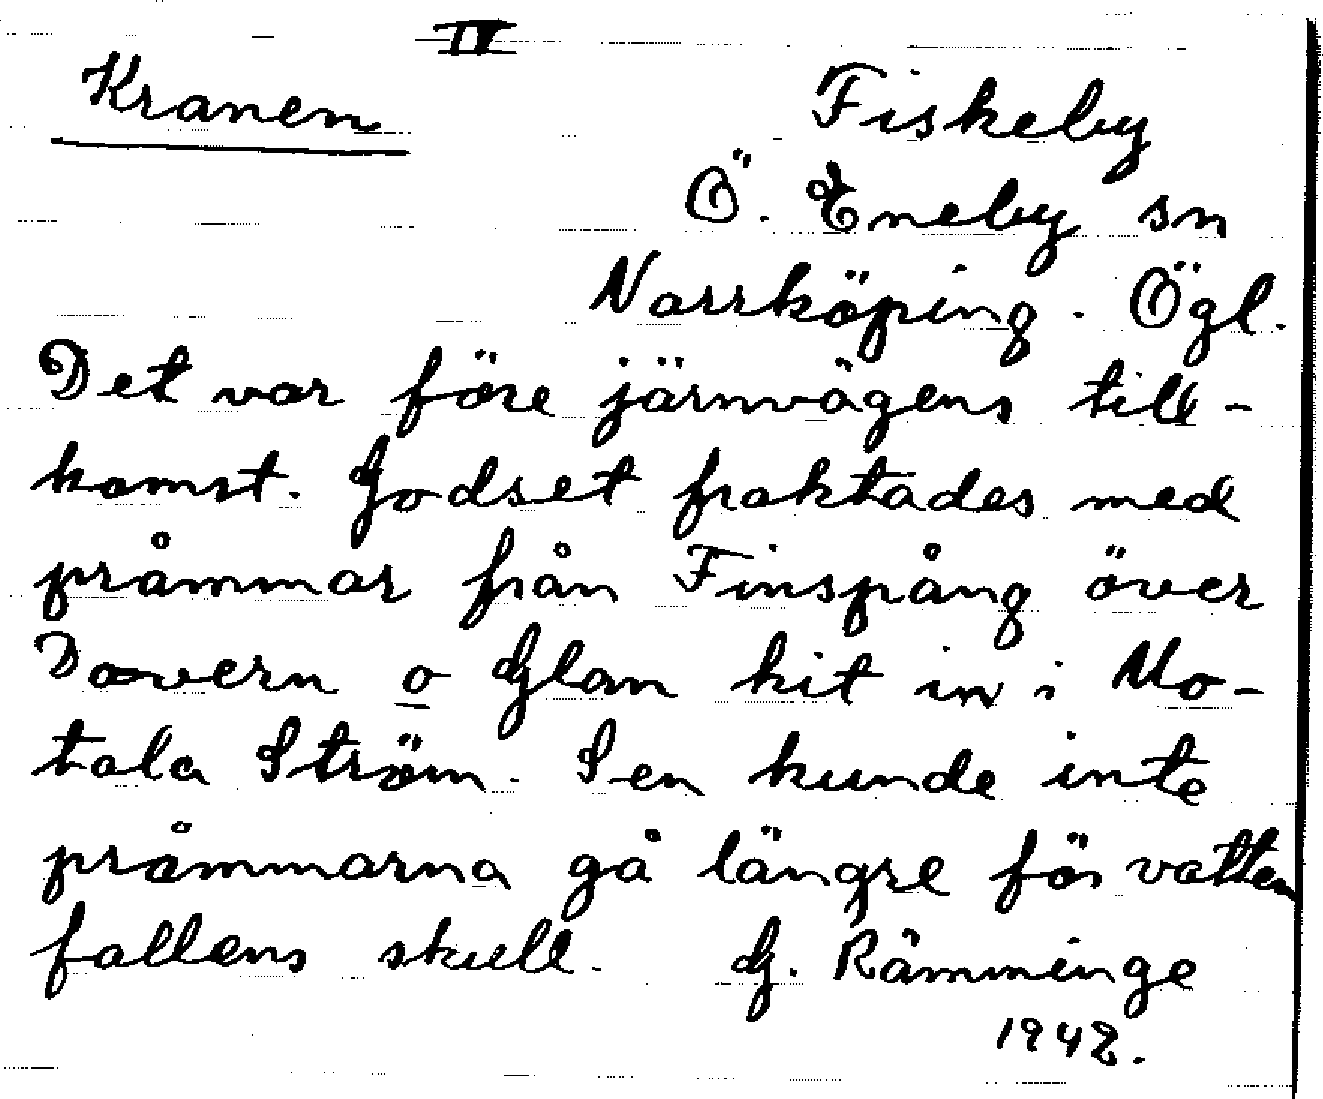 IV
Kranen
Fiskeby
Ö. Eneby sn
Norrköping. Ögl.
Det var före järnvägens till-
komst. Godset fraktades med
pråmmar från Finspång över
Dovern o Glan hit in i Mo-
tala Ström. Sen kunde inte
pråmmarna gå längre för vatten
fallens skull. G. Rämminge
1942.